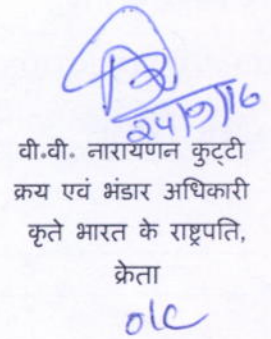 24/9/16
वी.वी. नारायणन कुट्टी
क्रय एवं भंडार अधिकारी
कृते भारत के राष्ट्रपति,
क्रेता
o/c